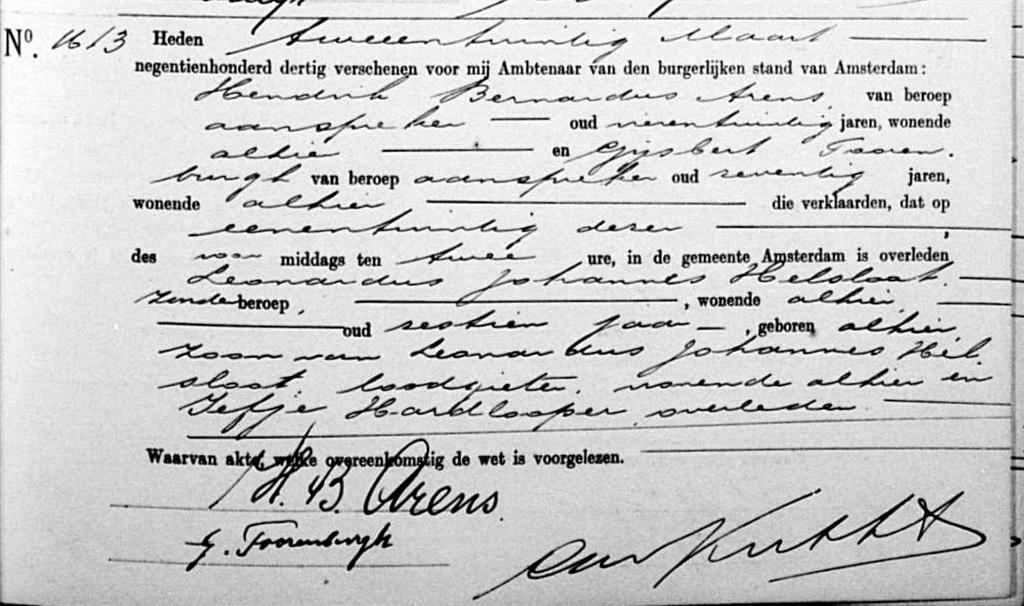 Nº. 1613 Heden tweeentwintig Maart
negentienhonderd dertig verschenen voor mij Ambtenaar van den burgerlijken stand van Amsterdam:
Hendrik Bernardus Arens, van beroep
aanspreker oud vierentwintig jaren, wonende
alhier en Gijsbert Tooren-
burgh van beroep aanspreker oud zeventig jaren,
wonende alhier die verklaarden, dat op
eenentwintig dezer,
des voor middags ten twee ure, in de gemeente Amsterdam is overleden
Leonardus Johannes Helsloot.
zonder beroep, wonende alhier,
oud zestien jaar, geboren alhier,
zoon van Leonardus Johannes Hel-
sloot, loodgieter, wonende alhier en
Jefje Hardlooper overleden
Waarvan akte, welke overeenkomstig de wet is voorgelezen.
H. B. Arens
G. Toorenburgh